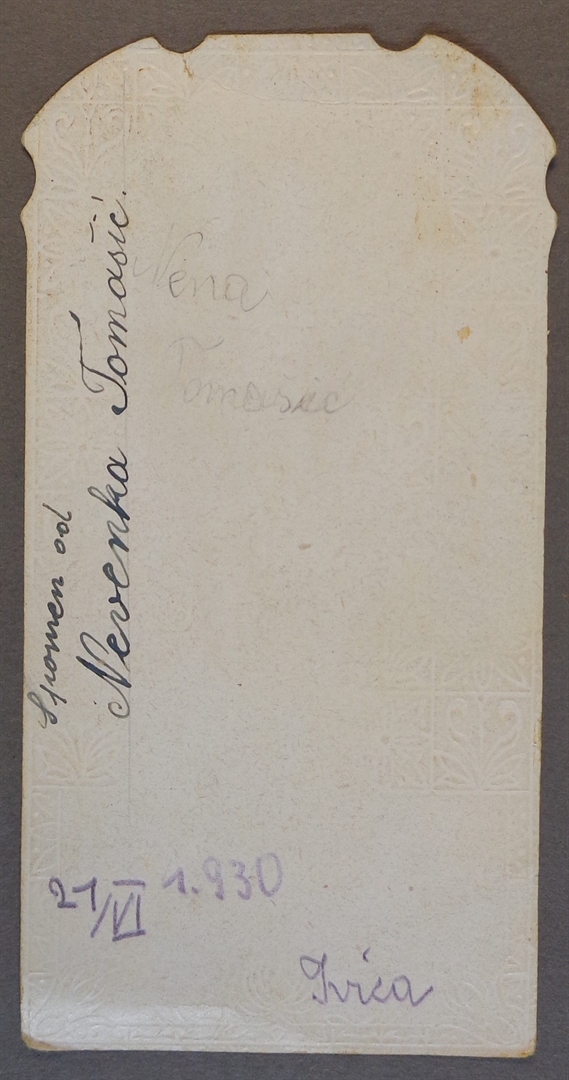 Spomen od
Nevenka Tomašić.
Nena
Tomašić
21/VI 1.930
Ivica